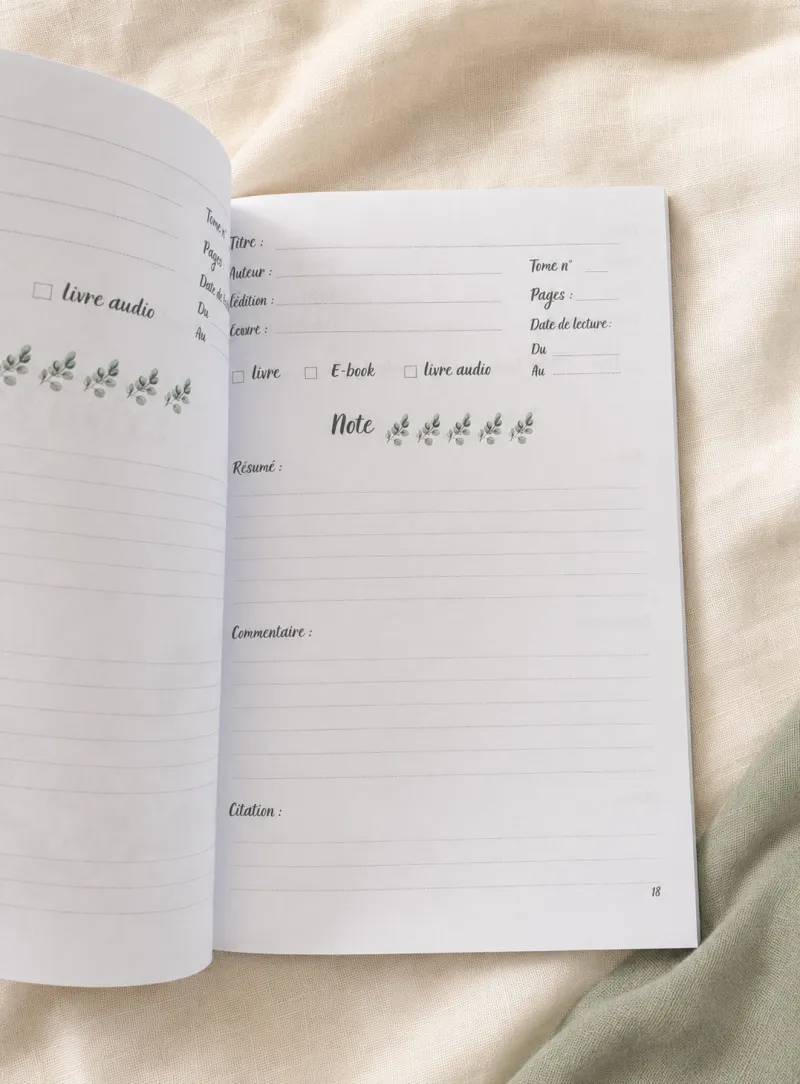 Tome n°
Pages :
Date de
Du
Au
livre audio
Titre :
Auteur :
Tome n°
l'édition :
Pages :
Date de lecture:
Du
Au
livre
E-book
livre audio
Note
Résumé :
Commentaire :
Citation :
18